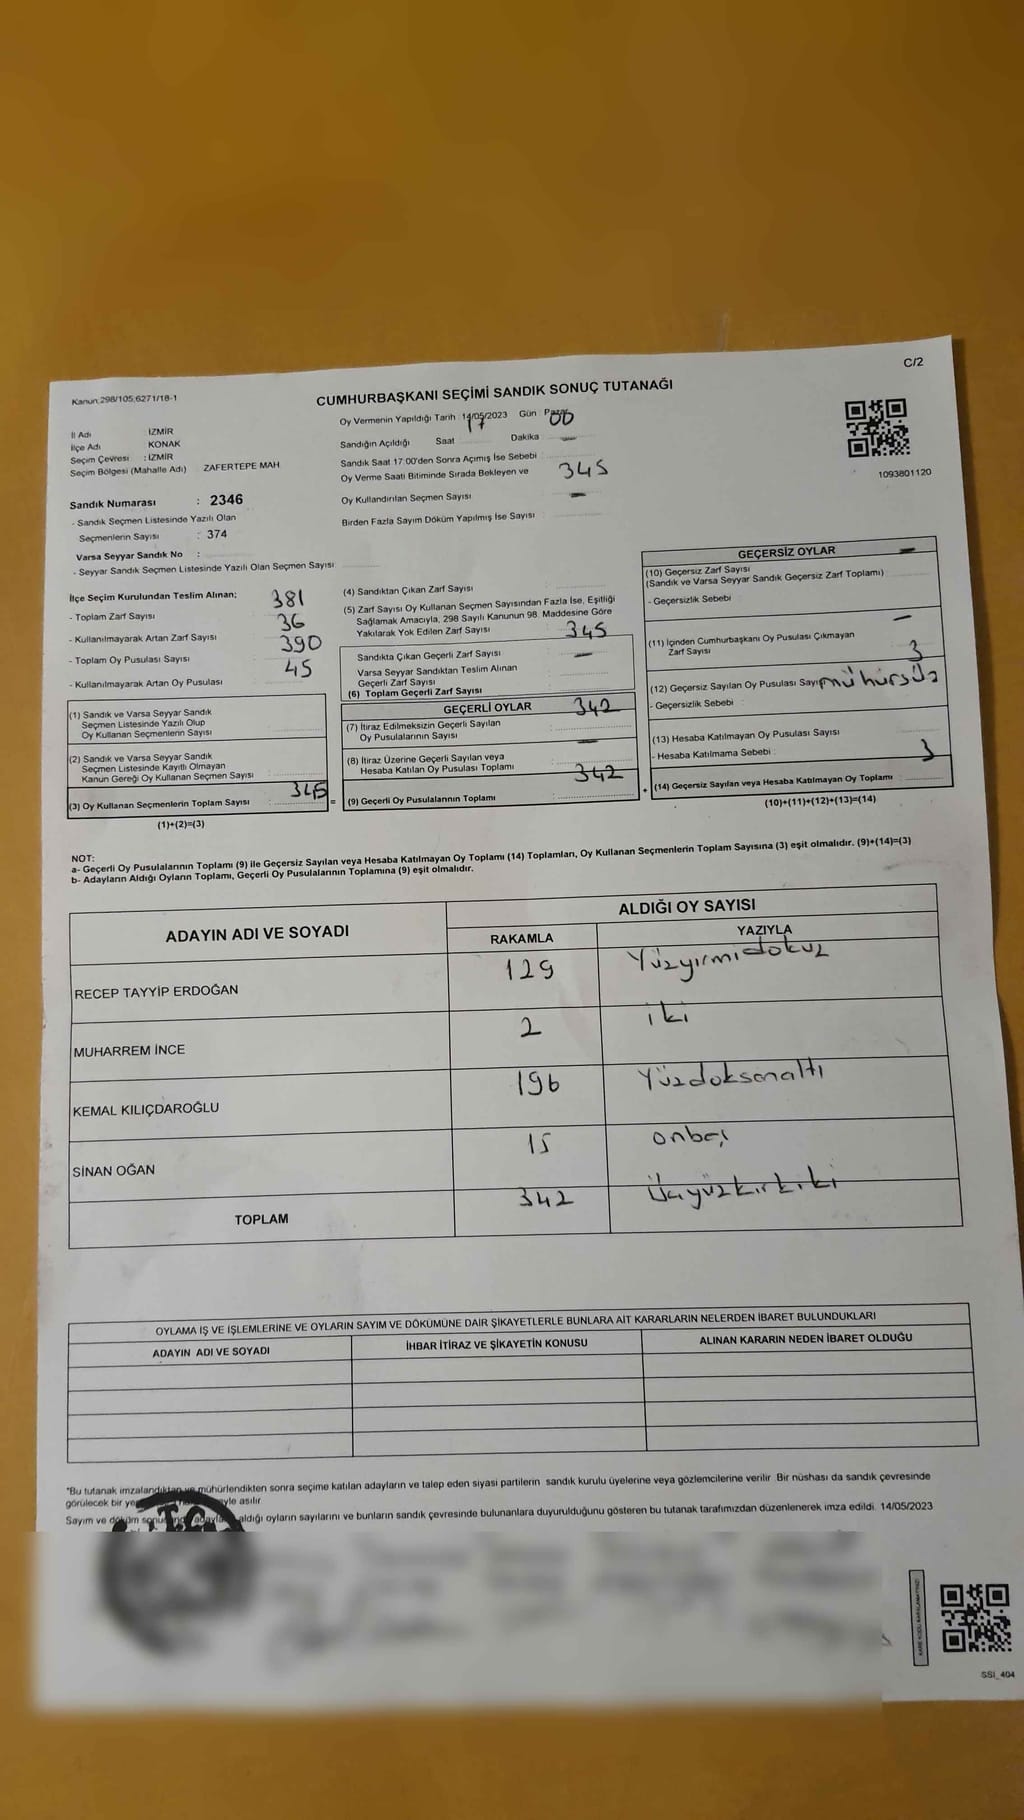 C/2
Kanun:298/105;6271/18-1
CUMHURBAŞKANI SEÇİMİ SANDIK SONUÇ TUTANAĞI
İl Adı İZMİR
İlçe Adı KONAK
Seçim Çevresi : İZMİR
Seçim Bölgesi (Mahalle Adı) ZAFERTEPE MAH
Sandık Numarası : 2346
- Sandık Seçmen Listesinde Yazılı Olan
Seçmenlerin Sayısı : 374
Varsa Seyyar Sandık No :
- Seyyar Sandık Seçmen Listesinde Yazılı Olan Seçmen Sayısı
Oy Vermenin Yapıldığı Tarih 14/05/2023 Gün : Pazar
Sandığın Açıldığı Saat 17 Dakika 00
Sandık Saat 17:00'den Sonra Açımış İse Sebebi :
Oy Verme Saati Bitiminde Sırada Bekleyen ve
Oy Kullandırılan Seçmen Sayısı
Birden Fazla Sayım Döküm Yapılmış İse Sayısı
345
1093801120
İlçe Seçim Kurulundan Teslim Alınan;
- Toplam Zarf Sayısı 381
- Kullanılmayarak Artan Zarf Sayısı 36
- Toplam Oy Pusulası Sayısı 390
- Kullanılmayarak Artan Oy Pusulası 45
(1) Sandık ve Varsa Seyyar Sandık
Seçmen Listesinde Yazılı Olup
Oy Kullanan Seçmenlerin Sayısı
(2) Sandık ve Varsa Seyyar Sandık
Seçmen Listesinde Kayıtlı Olmayan
Kanun Gereği Oy Kullanan Seçmen Sayısı
(3) Oy Kullanan Seçmenlerin Toplam Sayısı : 345 =
(1)+(2)=(3)
(4) Sandıktan Çıkan Zarf Sayısı
(5) Zarf Sayısı Oy Kullanan Seçmen Sayısından Fazla İse, Eşitliği
Sağlamak Amacıyla, 298 Sayılı Kanunun 98. Maddesine Göre
Yakılarak Yok Edilen Zarf Sayısı :
345
Sandıkta Çıkan Geçerli Zarf Sayısı
Varsa Seyyar Sandıktan Teslim Alınan
Geçerli Zarf Sayısı
(6) Toplam Geçerli Zarf Sayısı
GEÇERLİ OYLAR
342
(7) İtiraz Edilmeksizin Geçerli Sayılan
Oy Pusulalarının Sayısı
(8) İtiraz Üzerine Geçerli Sayılan veya
Hesaba Katılan Oy Pusulası Toplamı
342
(9) Geçerli Oy Pusulalarının Toplamı : +
GEÇERSİZ OYLAR
(10) Geçersiz Zarf Sayısı
(Sandık ve Varsa Seyyar Sandık Geçersiz Zarf Toplamı)
- Geçersizlik Sebebi :
(11) İçinden Cumhurbaşkanı Oy Pusulası Çıkmayan
Zarf Sayısı
3
(12) Geçersiz Sayılan Oy Pusulası Sayısı mühürsüz
- Geçersizlik Sebebi :
(13) Hesaba Katılmayan Oy Pusulası Sayısı
- Hesaba Katılmama Sebebi :
3
(14) Geçersiz Sayılan veya Hesaba Katılmayan Oy Toplamı :
(10)+(11)+(12)+(13)=(14)
NOT:
a- Geçerli Oy Pusulalarının Toplamı (9) ile Geçersiz Sayılan veya Hesaba Katılmayan Oy Toplamı (14) Toplamları, Oy Kullanan Seçmenlerin Toplam Sayısına (3) eşit olmalıdır. (9)+(14)=(3)
b- Adayların Aldığı Oyların Toplamı, Geçerli Oy Pusulalarının Toplamına (9) eşit olmalıdır.
ADAYIN ADI VE SOYADI ALDIĞI OY SAYISI
RAKAMLA YAZIYLA
RECEP TAYYİP ERDOĞAN 129 Yüzyirmidokuz
MUHARREM İNCE 2 iki
KEMAL KILIÇDAROĞLU 196 Yüzdoksanaltı
SİNAN OĞAN 15 onbeş
TOPLAM 342 Üçyüzkırkiki
OYLAMA İŞ VE İŞLEMLERİNE VE OYLARIN SAYIM VE DÖKÜMÜNE DAİR ŞİKAYETLERLE BUNLARA AİT KARARLARIN NELERDEN İBARET BULUNDUKLARI
ADAYIN ADI VE SOYADI İHBAR İTİRAZ VE ŞİKAYETİN KONUSU ALINAN KARARIN NEDEN İBARET OLDUĞU
"Bu tutanak imzalandıktan ve mühürlendikten sonra seçime katılan adayların ve talep eden siyasi partilerin sandık kurulu üyelerine veya gözlemcilerine verilir. Bir nüshası da sandık çevresinde
görülecek bir asılır
Sayım ve döküm aldığı oyların sayılarını ve bunların sandık çevresinde bulunanlara duyurulduğunu gösteren bu tutanak tarafımızdan düzenlenerek imza edildi. 14/05/2023
T.C.
SSI_404